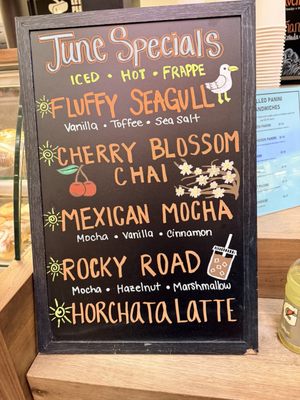 June Specials
ICED • HOT • FRAPPE
FLUFFY SEAGULL
Vanilla • Toffee • Sea Salt
CHERRY BLOSSOM
CHAI
MEXICAN MOCHA
Mocha • Vanilla • Cinnamon
ROCKY ROAD
Mocha • Hazelnut • Marshmallow
HORCHATA LATTE